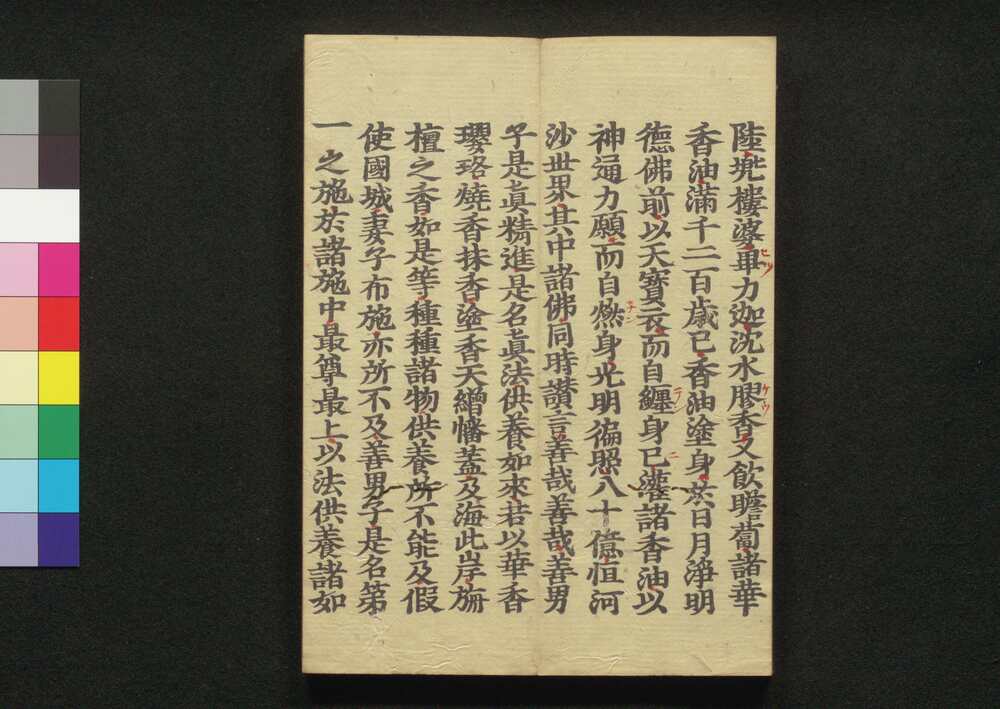 陸兜樓婆畢力迦沈水膠香又飲瞻蔔諸華
香油滿千二百歲已香油塗身於日月淨明
德佛前以天寶衣而自纏身已灌諸香油以
神通力願而自燃身光明徧照八十億恒河
沙世界其中諸佛同時讃言善哉善哉善男
子是眞精進是名眞法供養如來若以華香
瓔珞燒香抹香塗香天繒幡蓋及海此岸旃
檀之香如是等種種諸物供養所不能及假
使國城妻子布施亦所不及善男子是名第
一之施於諸施中最尊最上以法供養諸如